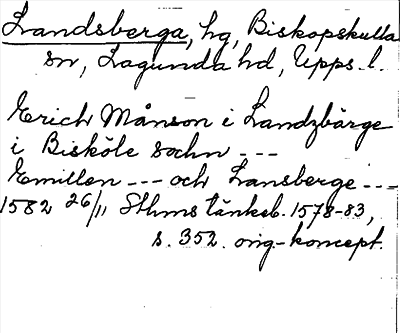 Landsberga, hg, Biskopskulla
sn, Lagunda hd, Upps. l.
Erich Månson i Landzbärge
i Bisköle sochn ---
Emillen --- och Lansberge ---
1582 26/11 Sthms tänkeb. 1578-83,
s. 352. orig.-koncept.